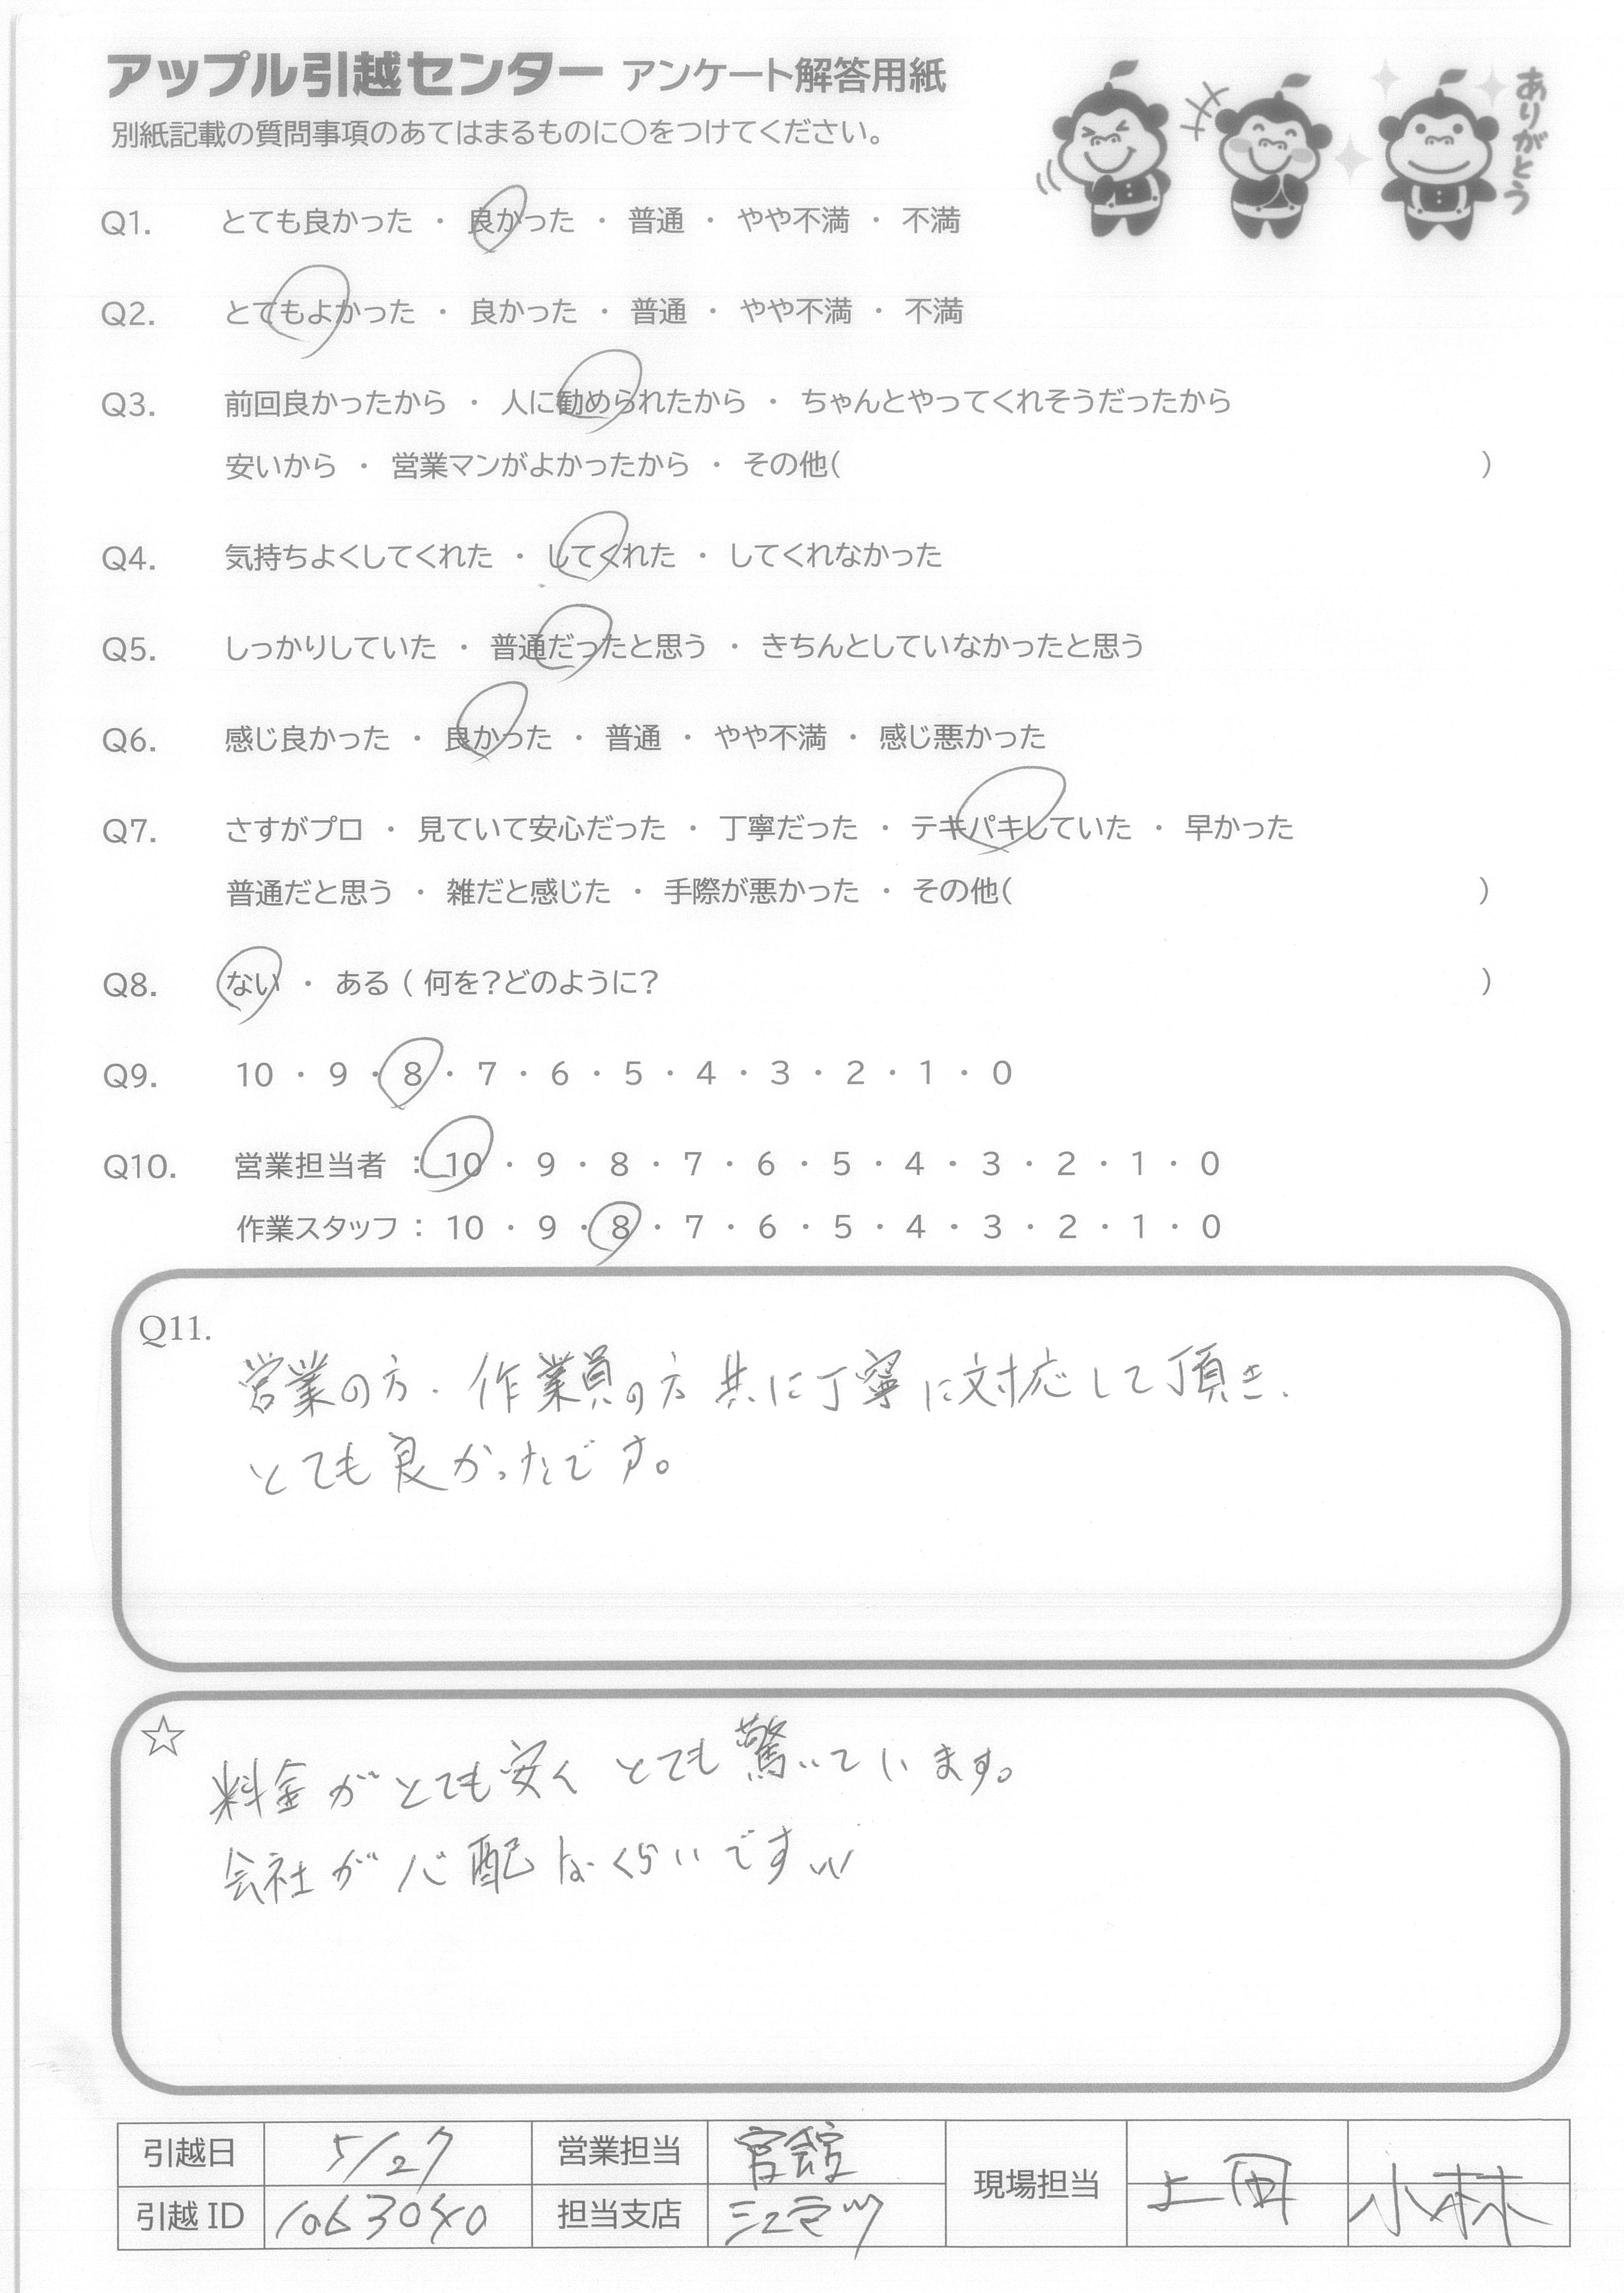 アップル引越センター アンケート解答用紙
別紙記載の質問事項のあてはまるものに○をつけてください。
ありがとう
Q1. とても良かった ・ 良かった ・ 普通 ・ やや不満 ・ 不満
Q2. とてもよかった ・ 良かった ・ 普通 ・ やや不満 ・ 不満
Q3. 前回良かったから ・ 人に勧められたから ・ ちゃんとやってくれそうだったから
安いから ・ 営業マンがよかったから ・ その他( )
Q4. 気持ちよくしてくれた ・ してくれた ・ してくれなかった
Q5. しっかりしていた ・ 普通だったと思う ・ きちんとしていなかったと思う
Q6. 感じ良かった ・ 良かった ・ 普通 ・ やや不満 ・ 感じ悪かった
Q7. さすがプロ ・ 見ていて安心だった ・ 丁寧だった ・ テキパキしていた ・ 早かった
普通だと思う ・ 雑だと感じた ・ 手際が悪かった ・ その他( )
Q8. ない ・ ある ( 何を?どのように? )
Q9. 10 ・ 9 ・ 8 ・ 7 ・ 6 ・ 5 ・ 4 ・ 3 ・ 2 ・ 1 ・ 0
Q10. 営業担当者 : 10 ・ 9 ・ 8 ・ 7 ・ 6 ・ 5 ・ 4 ・ 3 ・ 2 ・ 1 ・ 0
作業スタッフ : 10 ・ 9 ・ 8 ・ 7 ・ 6 ・ 5 ・ 4 ・ 3 ・ 2 ・ 1 ・ 0
Q11.
営業の方・作業員の方共に丁寧に対応して頂き、
とても良かったです。
☆
料金がとても安くとても驚いています。
会社が心配なくらいですw
引越日 5/27 営業担当 現場担当 小林
引越ID 担当支店